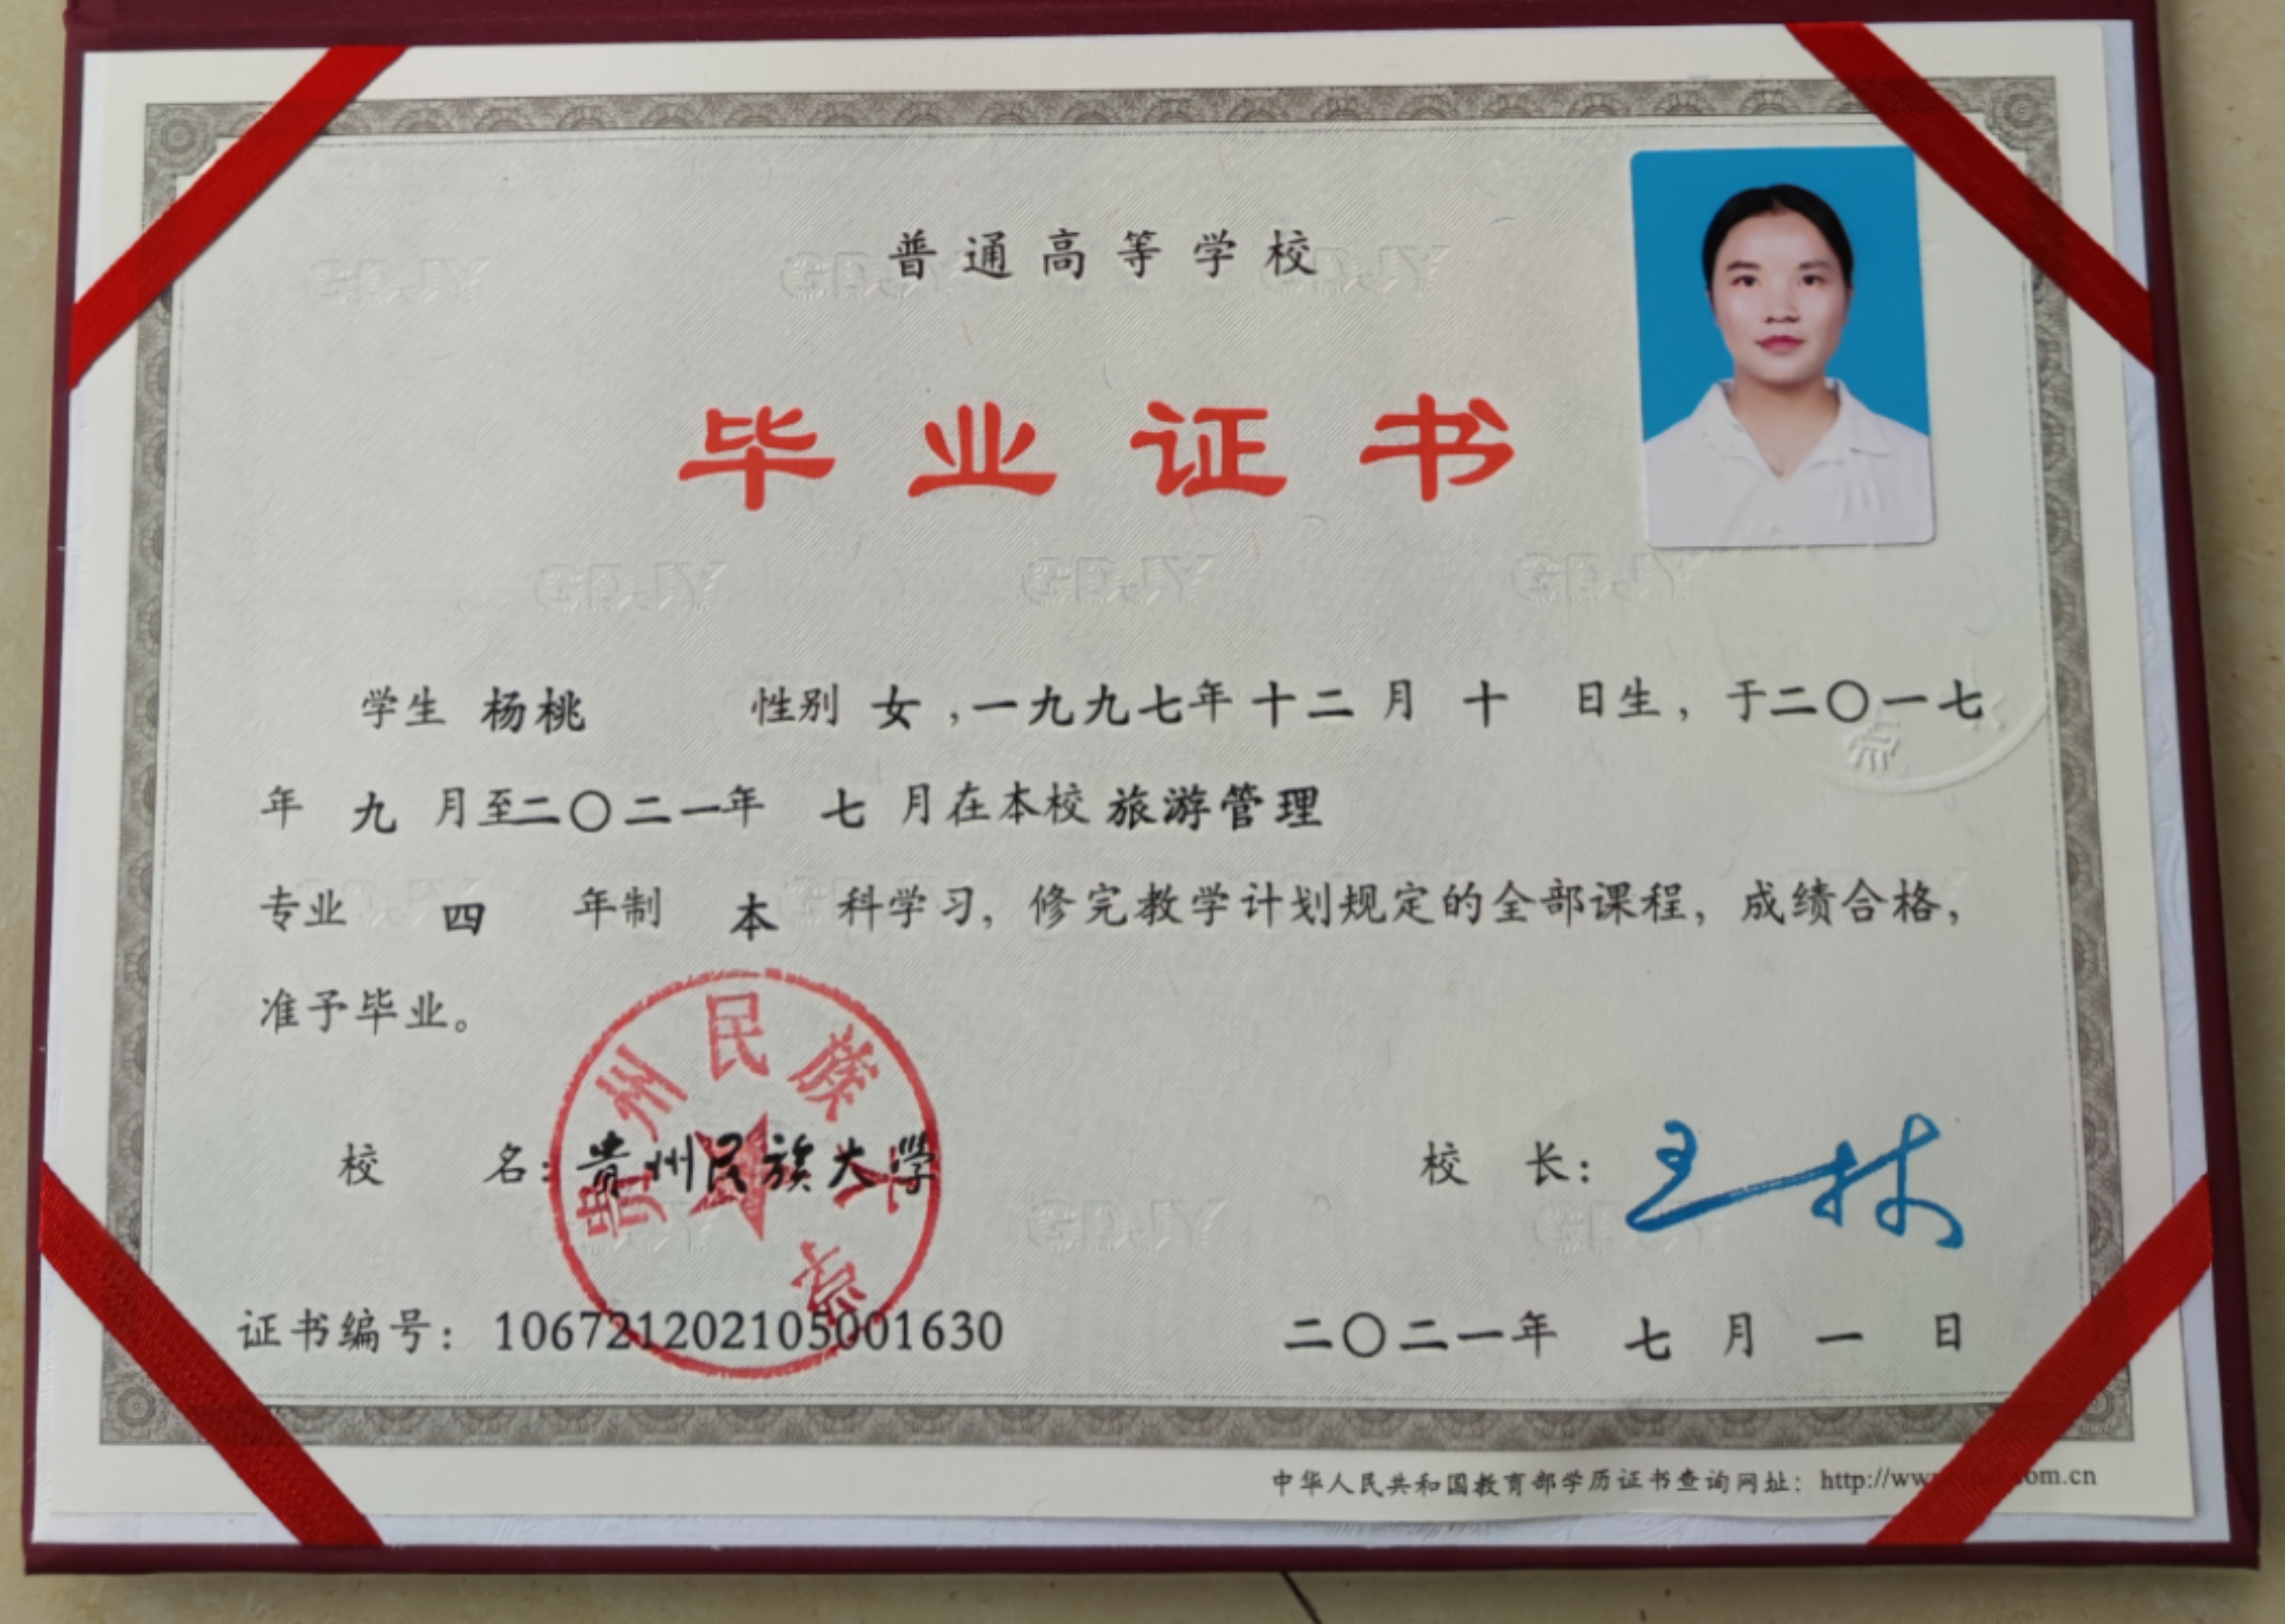 普通高等学校
毕业证书
学生 杨桃 性别 女 ,一九九七年 十二 月 十 日生, 于二〇一七
年 九 月至二〇二一年 七 月在本校 旅游管理
专业 四 年制 本 科学习, 修完教学计划规定的全部课程, 成绩合格,
准予毕业。
贵州民族大学
校 名: 贵州民族大学 校 长: 王林
证书编号: 106721202105001630 二〇二一年 七 月 一 日
中华人民共和国教育部学历证书查询网址: http://ww
om.cn